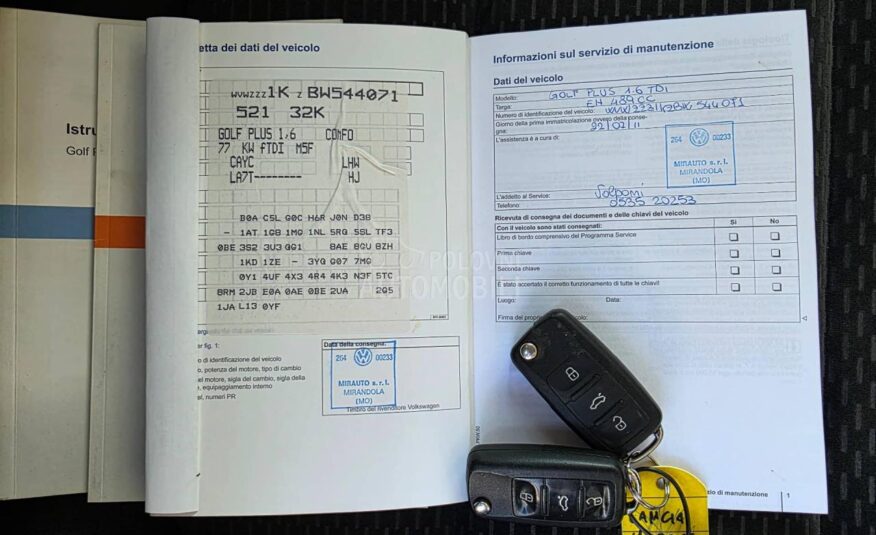 Istru
Golf P
etta dei dati del veicolo
WVWZZZ 1K Z BW544071
521 32K
GOLF PLUS 1.6 COMFO
77 KW fTDI M5F
CAYC LHW
LA7T-------- HJ
B0A C5L G0C H6R J0N D3B
- 1AT 1G8 1MG 1NL 5RG 5SL TF3
0BE 3S2 3U3 GG1 8AE 8GU 8ZH
1KD 1ZE - 3YG Q07 7MG
0Y1 4UF 4X3 4R4 4K3 N3F 5TC
8RM 2JB E0A 0AE 0BE 2UA 2G5
1JA L13 0YF
er fig. 1:
o di identificazione del veicolo
o, potenza del motore, tipo di cambio
el motore, sigla del cambio, sigla della
e, equipaggiamento interno
al, numeri PR
Data della consegna:
264 00233
MIRAUTO s.r.l.
MIRANDOLA
(MO)
Timbro del rivenditore Volkswagen
Informazioni sul servizio di manutenzione
Dati del veicolo
Modello: GOLF PLUS 1.6 TDI
Targa: EH 489CC
Numero di identificazione del veicolo:
Giorno della prima immatricolazione ovvero della conse-
gna: 22/02/11
L'assistenza è a cura di:
264 00233
MIRAUTO s.r.l.
MIRANDOLA
(MO)
L'addetto al Service:
Telefono: 0535 20253
Ricevuta di consegna dei documenti e delle chiavi del veicolo
Con il veicolo sono stati consegnati: Sì No
Libro di bordo comprensivo del Programma Service
Prima chiave
Seconda chiave
È stato accertato il corretto funzionamento di tutte le chiavi!
Luogo: Data:
Firma del propr
veicolo:
zio di manutenzione 1
POLOVNI
AUTOMOBILI